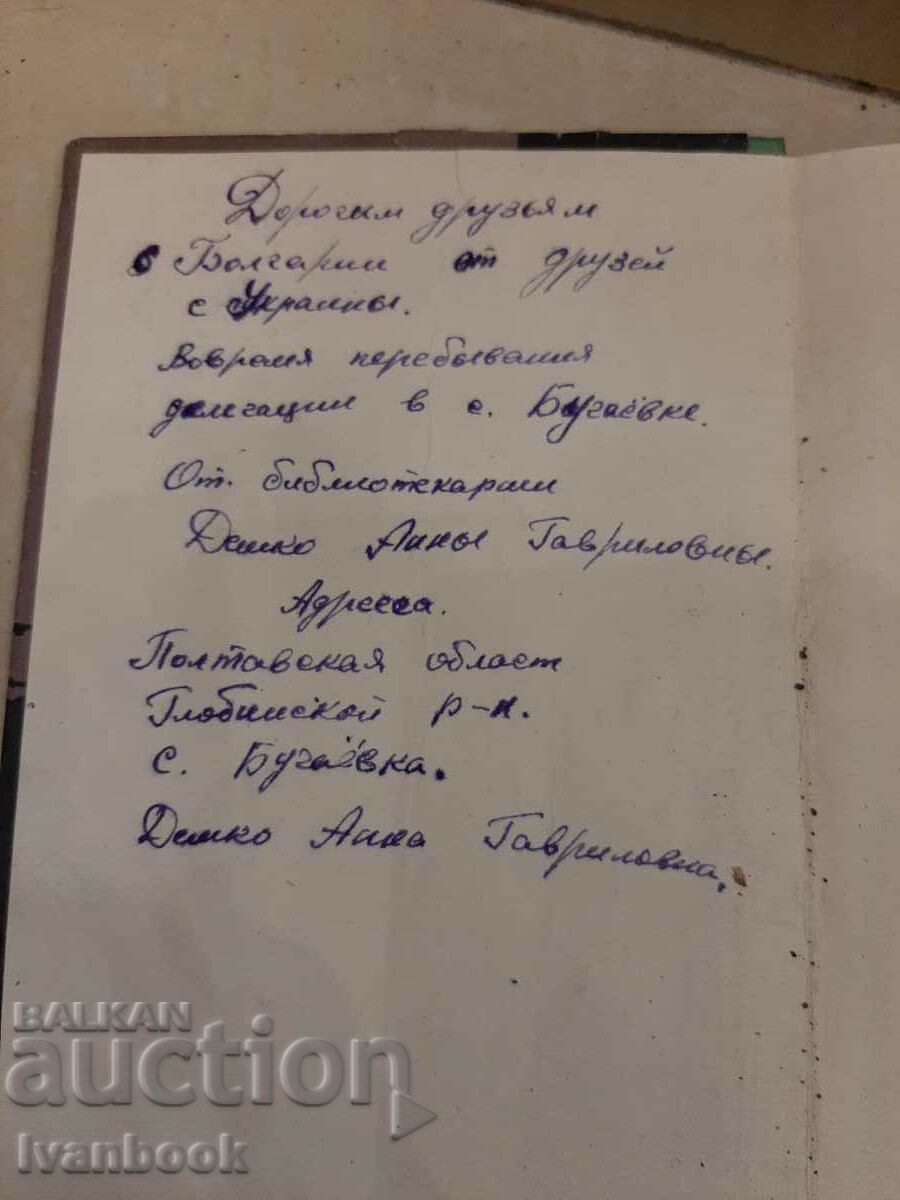 Дорогим друзьям
б Болгарии от друзей
с Украины.
Вовремя перебывания
делегации в с. Бугаёвке.
От. библиотекарши
Демко Анны Гавриловны.
Адресса.
Полтавская област
Глобинской р-н.
с. Бугаёвка.
Демко Анна Гавриловна.
BALKAN
auction
Ivanbook